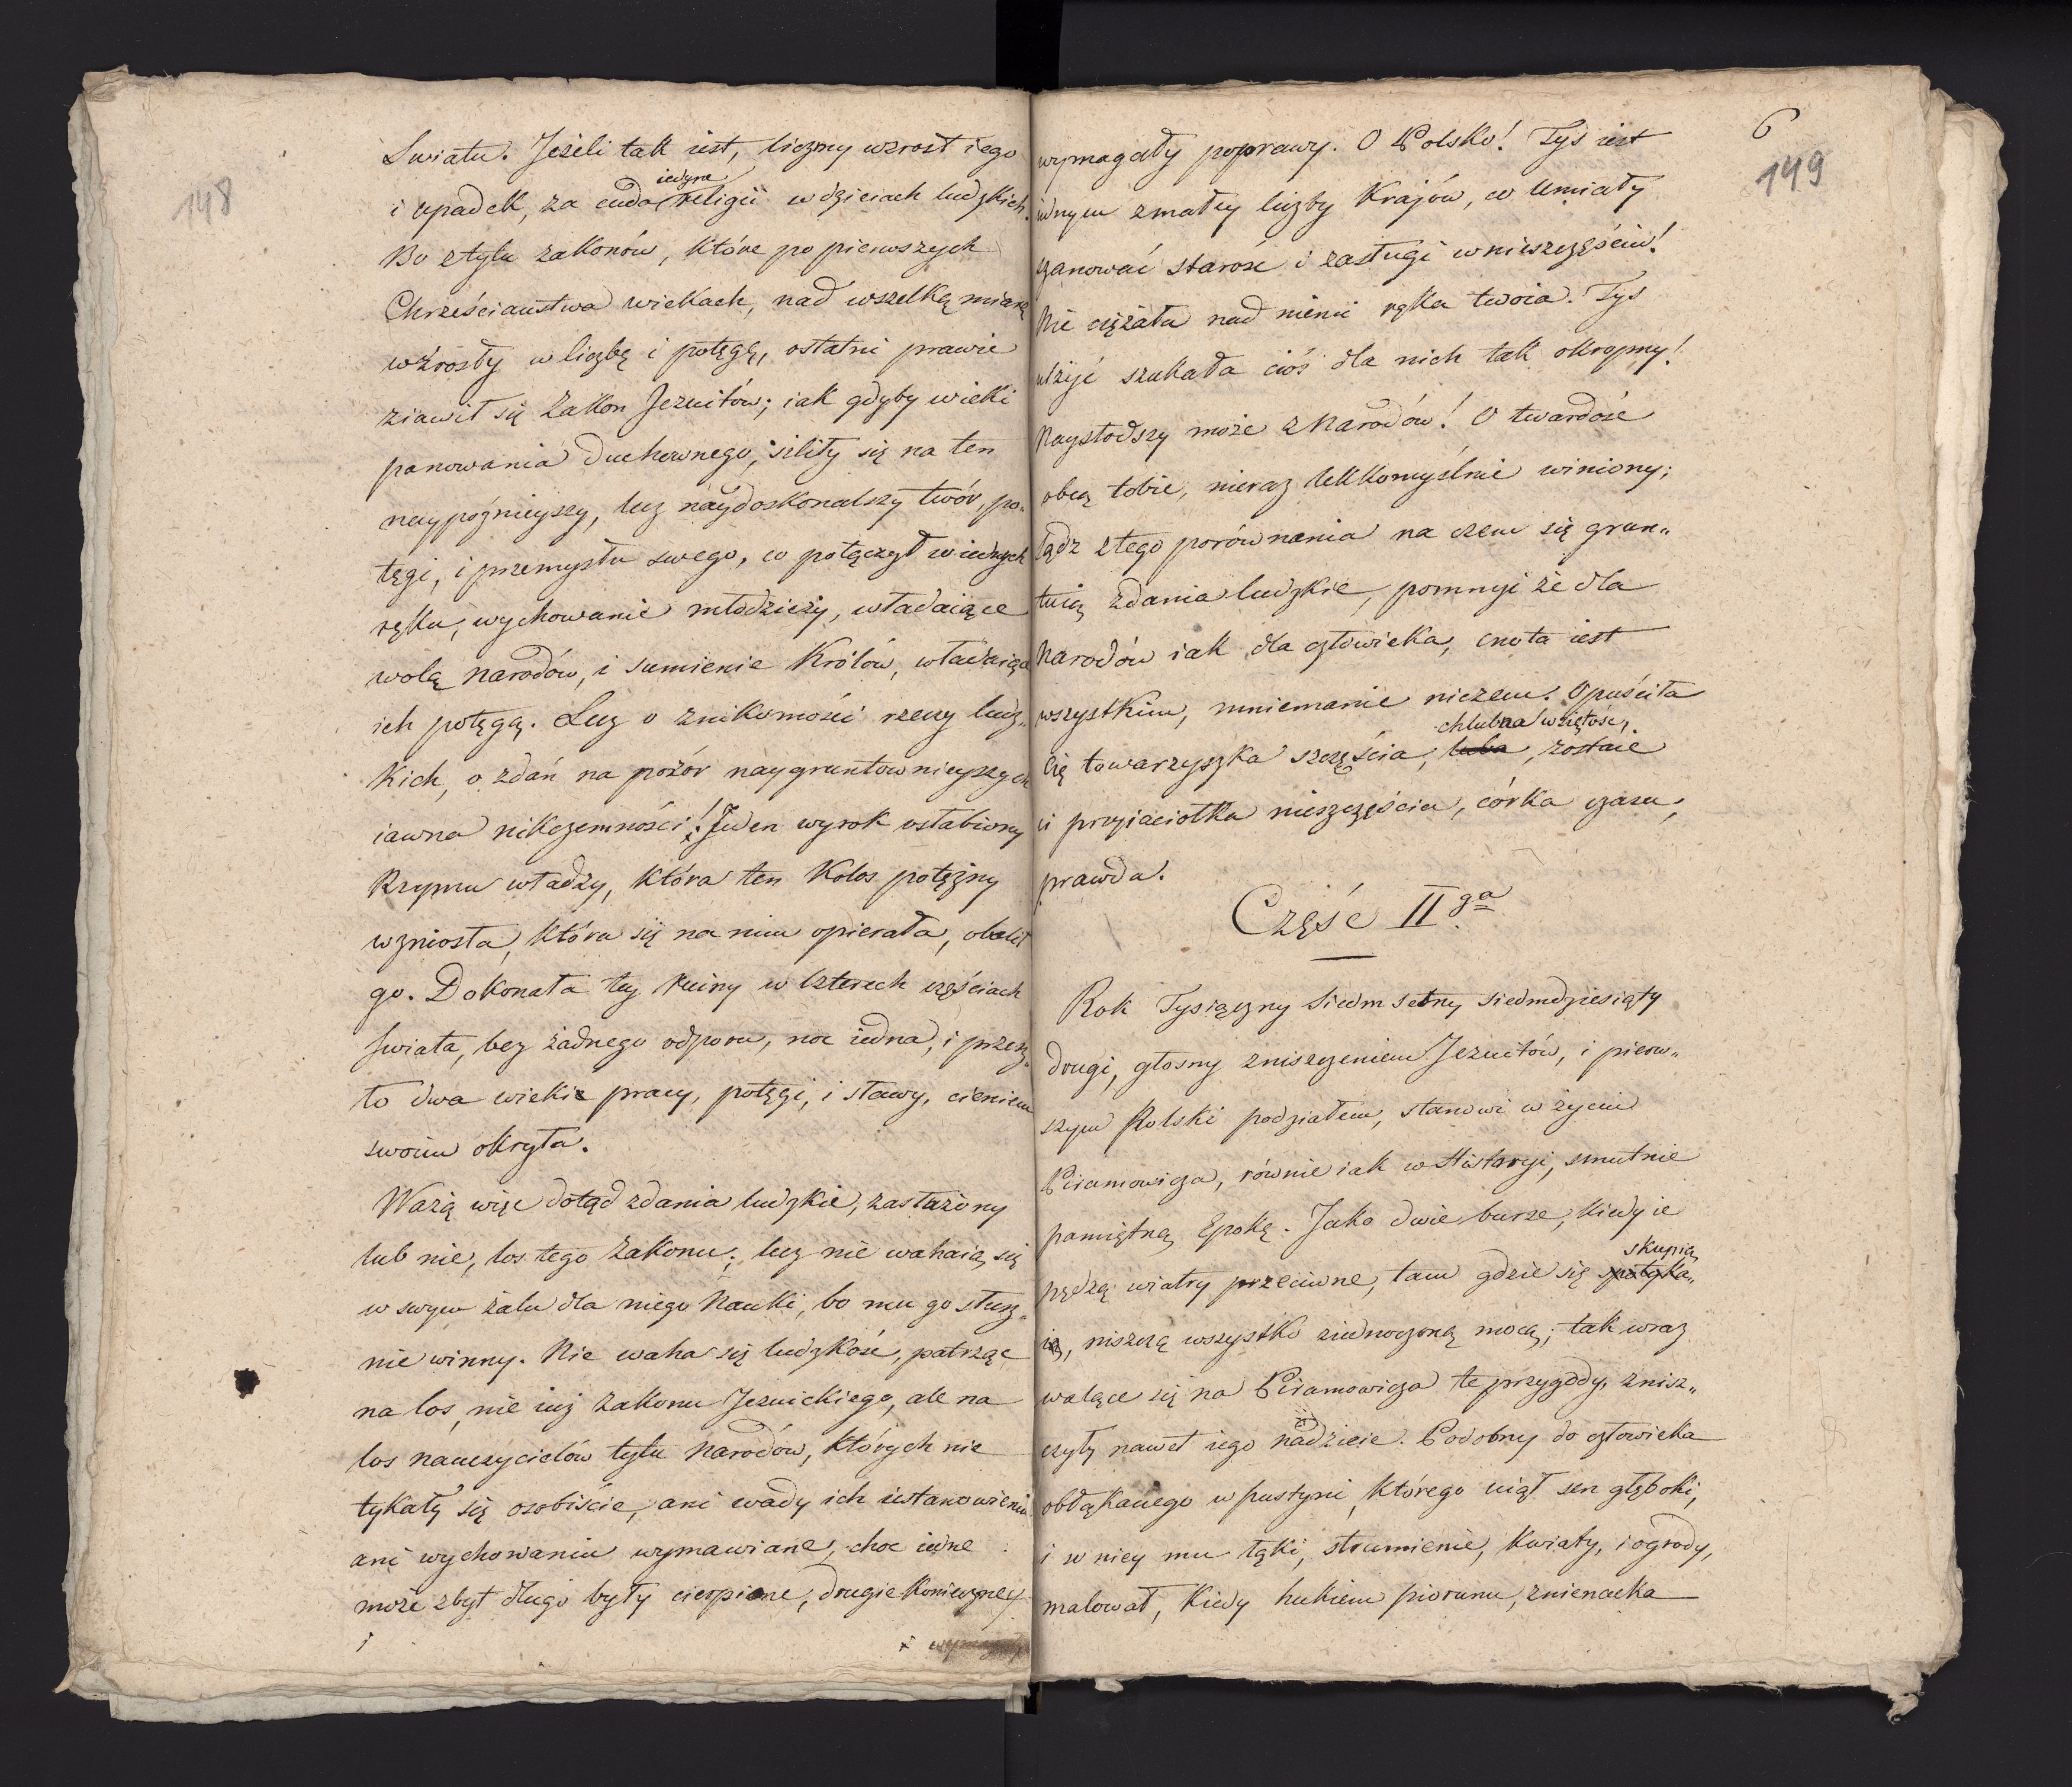 148
Swiata. Jeżeli tak iest, liczny wzrost iego
iedyne
i upadek, za cuda religii w dzieiach ludzkich.
Bo z tylu zakonów, które po pierwszych
Chrześciaństwa wiekach, nad wszelką miarę
wzrosły w liczbę i potęgę, ostatni prawie
ziawił się Zakon Jezuitów; iak gdyby wieki
panowania duchownego, siliły się na ten
naypóźnieyszy, lecz naydoskonalszy twór, po„
tęgi, i przemysłu swego, co połączył w iednych
ręku, wychowanie młodzieży, władaiące
wolą narodów, i sumienie Królów, władaiące
ich potęgą. Lecz o znikomości rzeczy ludz„
kich, o zdań na pozór naygruntownieyszych
iawna nikczemności! Jeden wyrok osłabioney
Rzymu władzy, która ten Kolos potężny
wzniosła, która się na nim opierała, obalił
go. Dokonała tey ruiny w czterech częściach
świata, bez żadnego odporu, noc iedna, i przesz„
ło dwa wieki pracy, potęgi, i sławy, cieniem
swoim okryła.
Ważą więc dotąd zdania ludzkie, zasłużony
lub nie, los tego Zakonu; lecz nie wahaią się
w swym żalu dla niego Nauki, bo mu go słusz„
nie winny. Nie waha się ludzkość, patrząc
na los, nie iuż Zakonu Jezuickiego, ale na
los nauczycielów tylu Narodów, których nie
tykały się osobiście, ani wady ich ustanowieniu
ani wychowaniu wymawiane, choc iedne
może zbyt długo były cierpiane, drugie konieczney
6
149
wymagały poprawy. O Polsko! Tyś iest
iednym z małey liczby Krajów, co umiały
szanować starość i zasługi w nieszczęściu!
Nie ciężała nad niemi ręka twoia. Tyś
ulżyć szukała ciós dla nich tak okropny!
Naysłodszy może z Narodów! O twardość
obcą tobie, nieraz lekkomyślnie winiony;
sądź z tego porównania na czem się grun„
tuią zdania ludzkie, pomnyi że dla
Narodów iak dla człowieka, cnota iest
wszystkim, mniemanie niczem. Opuściła
chlubna wziętość,
Cię towarzyszka szczęścia, luba, zostaie
ci przyiaciołka nieszczęścia, córka czasu,
prawda.
Część II ga
Rok Tysiączny siedmsetny siedmdziesiąty
drugi, głosny zniszczeniem Jezuitów, i pierw„
szym Polski podziałem, stanowi w życiu
Piramowicza, równie iak w Historyi, smutnie
pamiętną Epokę. Jako dwie burze, kiedy ie
skupią
pędzą wiatry przeciwne, tam gdzie się spotyka„
ią, niszczą wszystko ziednoczoną mocą; tak wraz
walące się na Piramowicza te przygody, znisz„
czyły nawet iego nadzieie. Podobny do człowieka
obłąkanego w pustyni, którego uiął sen głęboki,
i w niey mu łąki, strumienie, kwiaty, i ogrody,
malował, kiedy hukiem piorunu, znienacka